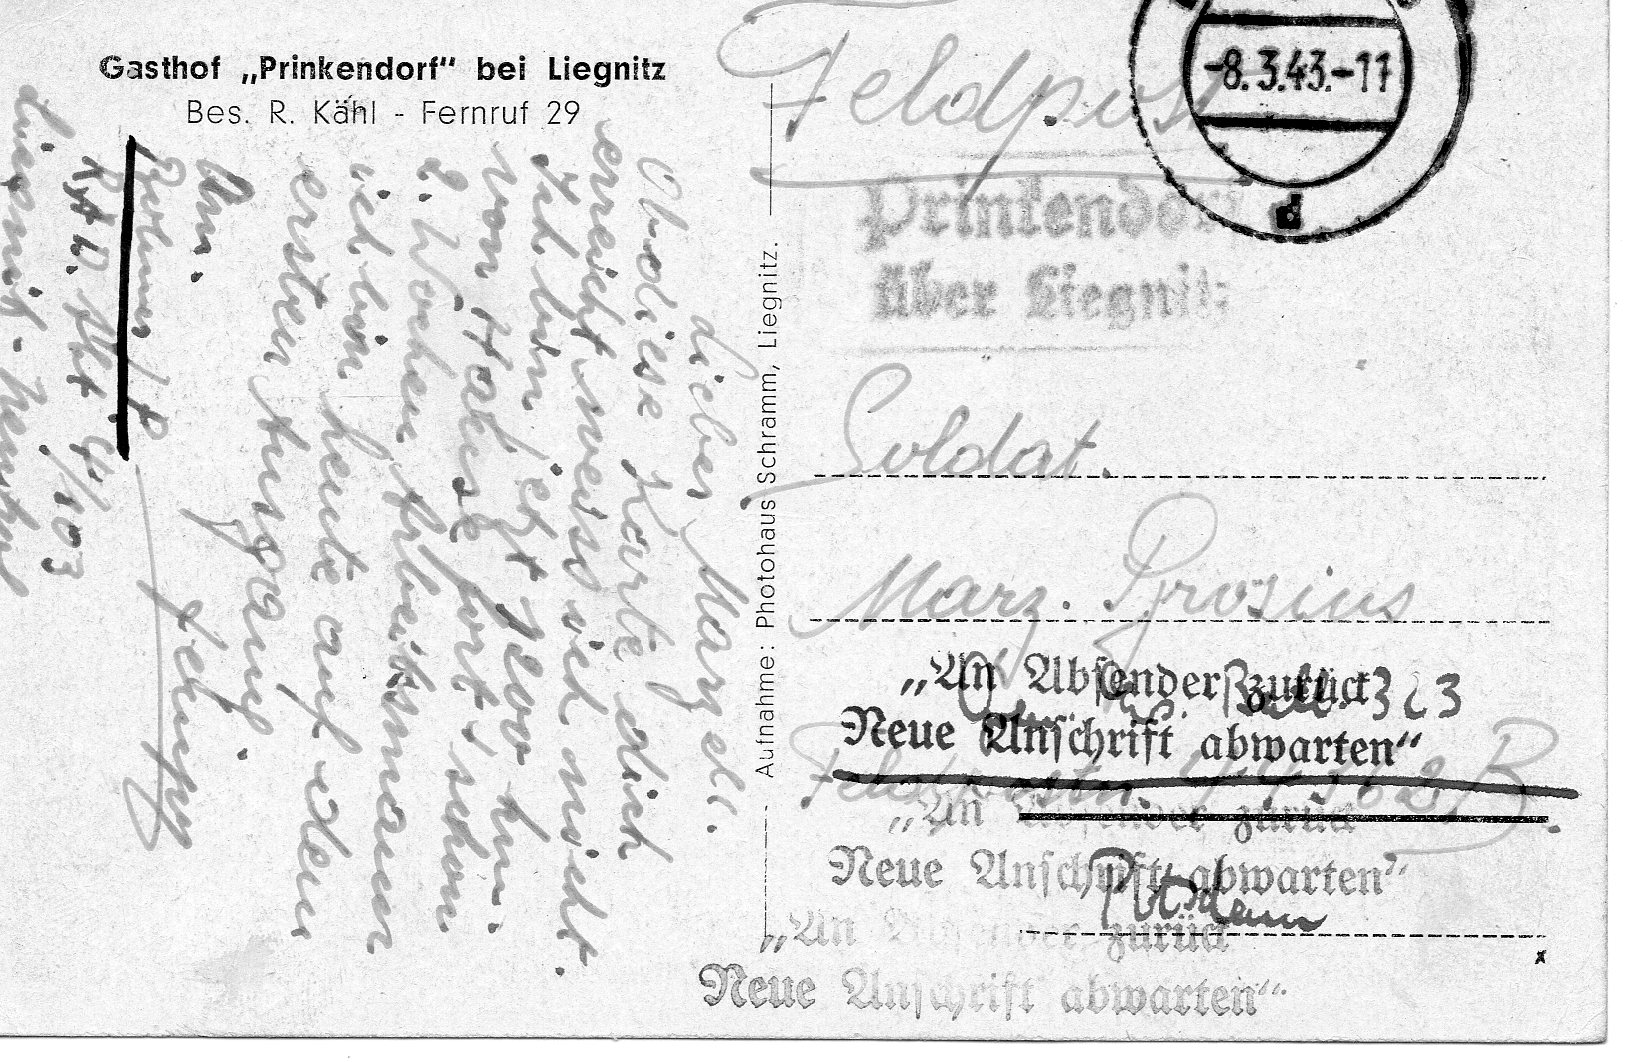 Gasthof „Prinkendorf" bei Liegnitz
Bes. R. Kähl - Fernruf 29
lieber Marzel.
Ob diese Karte dich
erreicht weiss ich nicht.
Ich bin jetzt
von Hause fort, schon
2. Wochen Arbeitsmann
ich bin heute auf dem
ersten Ausgang.
Um.
RAD. Abt. 4/103
Liegnitz.
Aufnahme: Photohaus Schramm, Liegnitz.
Feldpost
-8.3.43.-11
Prinkendorf
über Liegnitz
Soldat.
Marz. Prosius
„An Absender zurück
323
Neue Anschrift abwarten"
B
„An Absender zurück
Neue Anschrift abwarten"
„An Absender zurück
Neue Anschrift abwarten"